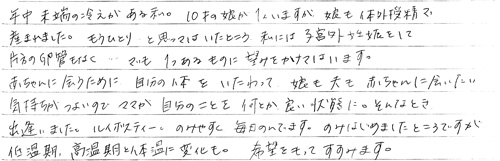 年中 末端の冷えがある私。10才の娘が1人いますが 娘も体外授精で
産まれました。もうひとり と思ってはいたところ 私には子宮外妊娠をして
片方の卵管もなく… でも 1つあるものに 望みをかけてはいます。
赤ちゃんに会うために 自分の体を いたわって 娘も夫も 赤ちゃんに会いたい
気持ちがつよいので ママが 自分のことを 何とか良い状態に。そんなとき
出逢いました。ルイボスティー。のみやすく 毎日のんでます。のみはじめましたところですが
低温期、高温期と体温に変化も。 希望をもってすすみます。